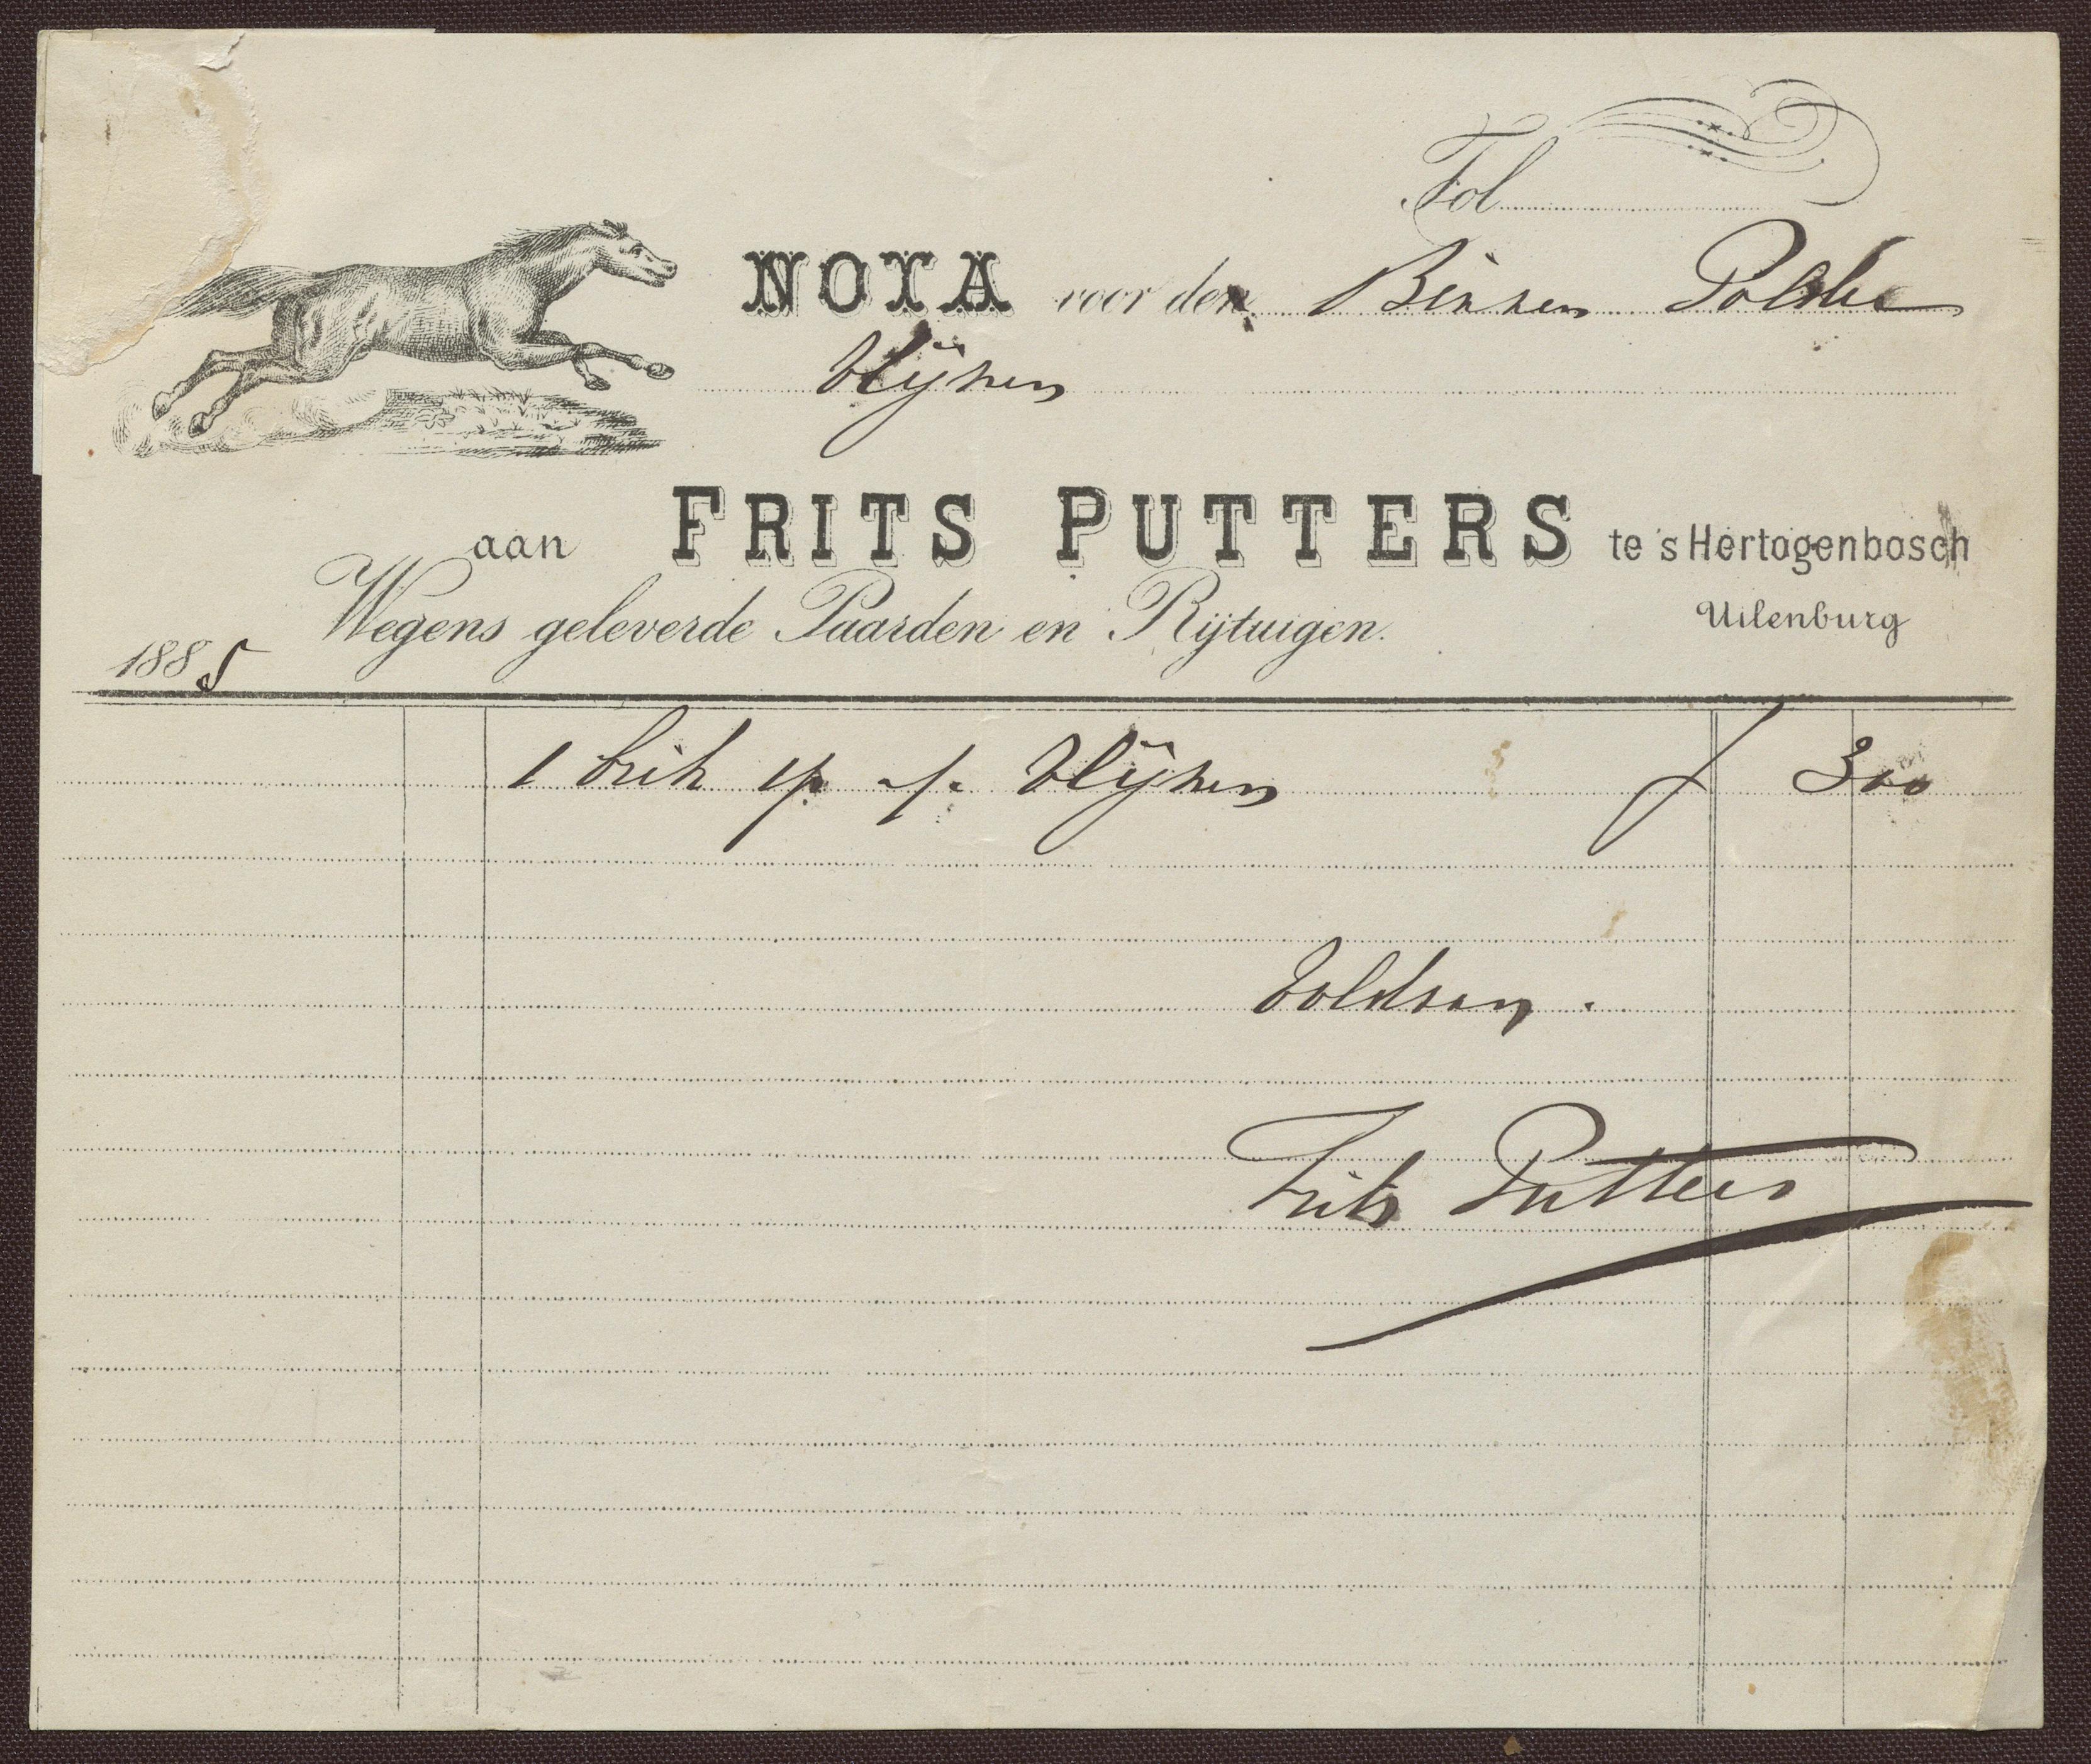 Fol
NOTA voor den Binnen Polder
Vlijmen
aan FRITS PUTTERS te 's Hertogenbosch
Wegens geleverde Paarden en Rijtuigen.
Uilenburg
1885
1 brik Vlijmen f 300
Voldaan.
Frits Putters